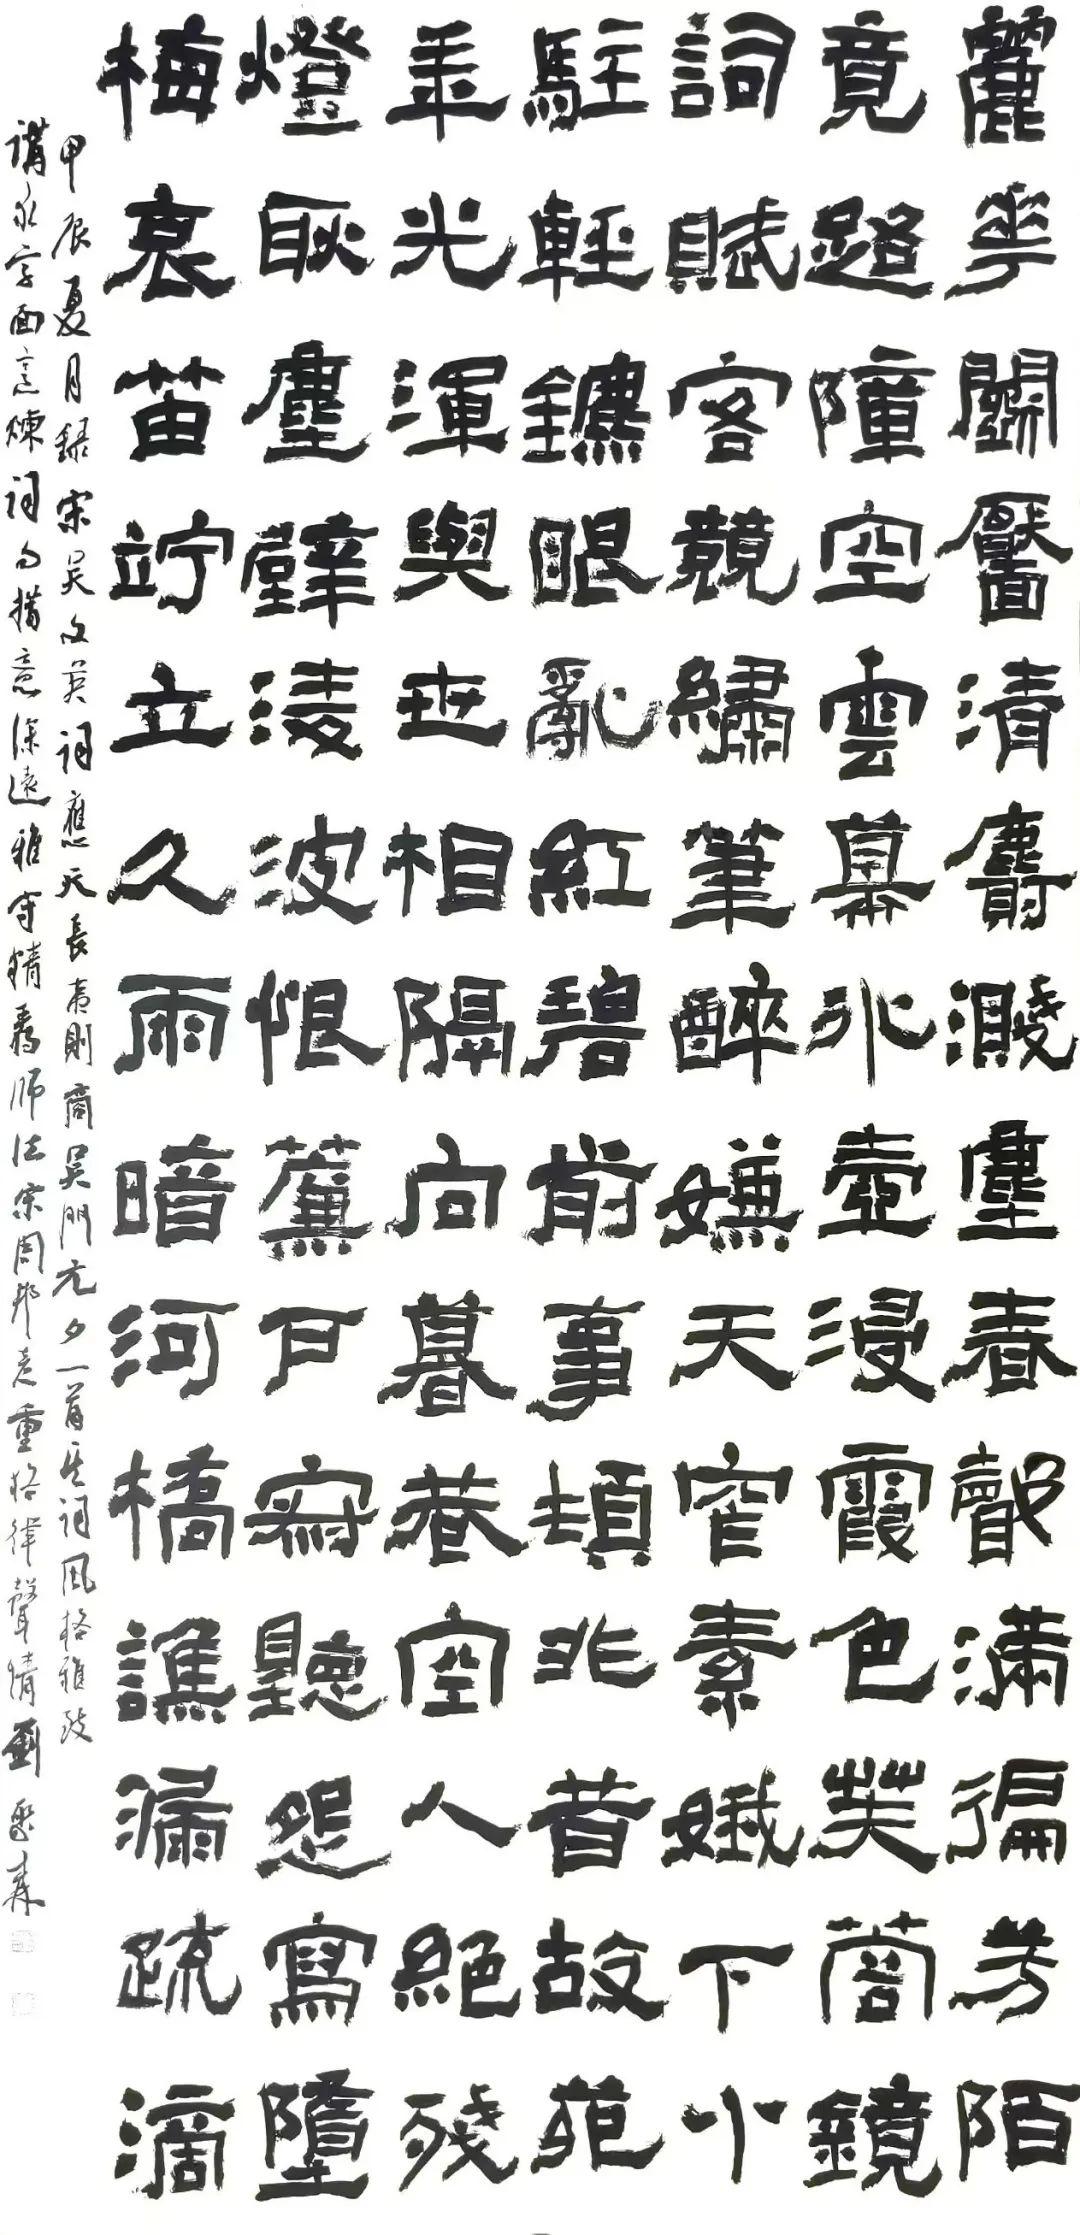 麗華鬭靨清麝濺塵春聲滿徧芳陌
竟路障空雲幕冰壺浸霞色芙蓉鏡
詞賦客競繡筆醉嫌天窄素娥下小
駐輕鑣眼亂紅碧前事頓非昔故苑
年光渾與世相隔向暮巷空人絕殘
燈耿塵壁凌波恨簾戶寂聽怨寫墮
梅哀笛竚立久雨暗河橋譙漏疏滴
甲辰夏月錄宋吳文英詞應天長夷則商吳門元夕一首其詞風格雅致
講求字面烹煉詞句措意深遠雅守精專師法宗周邦彥重格律聲情劉